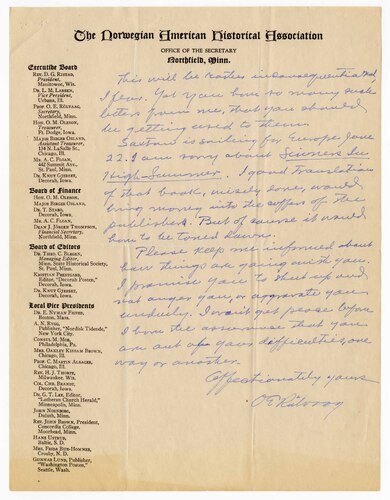 The Norwegian American Historical Association
OFFICE OF THE SECRETARY
Northfield, Minn.
Executive Board
REV. D. G. RISTAD,
President,
Manitowoc, Wis.
DR. L. M. LARSEN,
Vice President,
Urbana, Ill.
PROF. O. E. RÖLVAAG,
Secretary,
Northfield, Minn.
HON. O. M. OLESON,
Treasurer,
Ft. Dodge, Iowa.
MAJOR BIRGER OSLAND,
Assistant Treasurer,
134 N. LaSalle St.,
Chicago, Ill.
MR. A. C. FLOAN,
St. Paul, Minn.
DR. KNUT GJERSET,
Decorah, Iowa.
Board of Finance
HON. O. M. OLESON,
MAJOR BIRGER OSLAND,
DR. T. STABO,
Decorah, Iowa.
MR. A. C. FLOAN,
DEAN J. JÖRGEN THOMPSON,
Financial Secretary,
Northfield, Minn.
Board of Editors
DR. THEO. C. BLEGEN,
Managing Editor,
Minn. State Historical Society,
St. Paul, Minn.
KRISTIAN PRESTGARD,
Editor, "Decorah Posten,"
Decorah, Iowa.
DR. KNUT GJERSET,
Decorah, Iowa.
Local Vice Presidents
Boston, Mass.
A. N. RYGG,
Publisher, "Nordisk Tidende,"
New York City.
CONSUL M. MOE,
Philadelphia, Pa.
Chicago, Ill.
Chicago, Ill.
REV. H. J. THORPE,
Milwaukee, Wis.
COL. CHR. BRANDT,
Decorah, Iowa.
DR. G. T. LEE, Editor,
"Lutheran Church Herald,"
Minneapolis, Minn.
JOHN NORDBORG,
Duluth, Minn.
REV. JOHN BROWN, President,
Concordia College,
Moorhead, Minn.
HANS USTRUD,
Baltic, S. D.
Crosby, N. D.
GUNNAR LUND, Publisher,
"Washington Posten,"
Seattle, Wash.
This will be rather inconsequential
I fear. Yet you have so many such
letters from me, that you should
be getting used to them.
is sailing for Europe June
22. I am sorry about
High-Summer. A good translation
of that book, nicely done, would
bring money into the coffers of the
publishers. But of course it would
have to be toned down.
Please keep me informed about
how things are going with you.
I promise you to shut up and
not anger you, or aggravate you
unduly. I won't get peace before
I have the assurance that you
are out of your difficulties, one
way or another.
Affectionately yours
O E Rölvaag